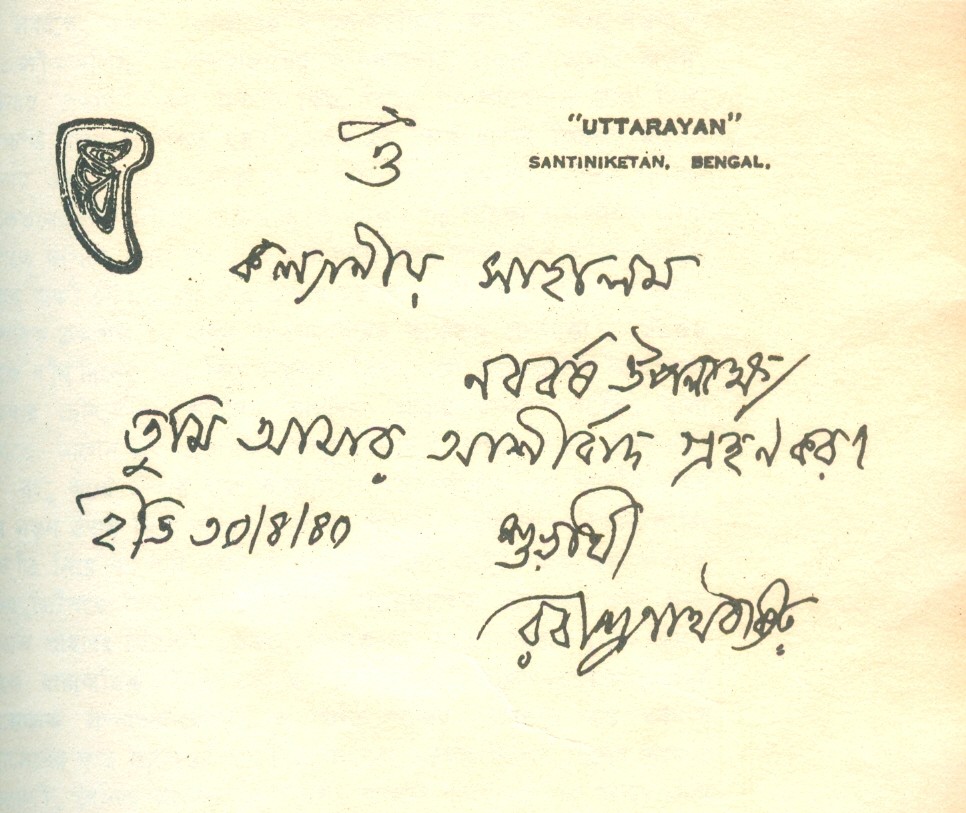 ওঁ
"UTTARAYAN"
SANTINIKETAN, BENGAL.
কল্যাণীয় সাহালম
নববর্ষ উপলক্ষ্যে
তুমি আমার আশীর্বাদ গ্রহণ কর।
ইতি ৩০/৪/৪০
শুভার্থী
রবীন্দ্রনাথ ঠাকুর